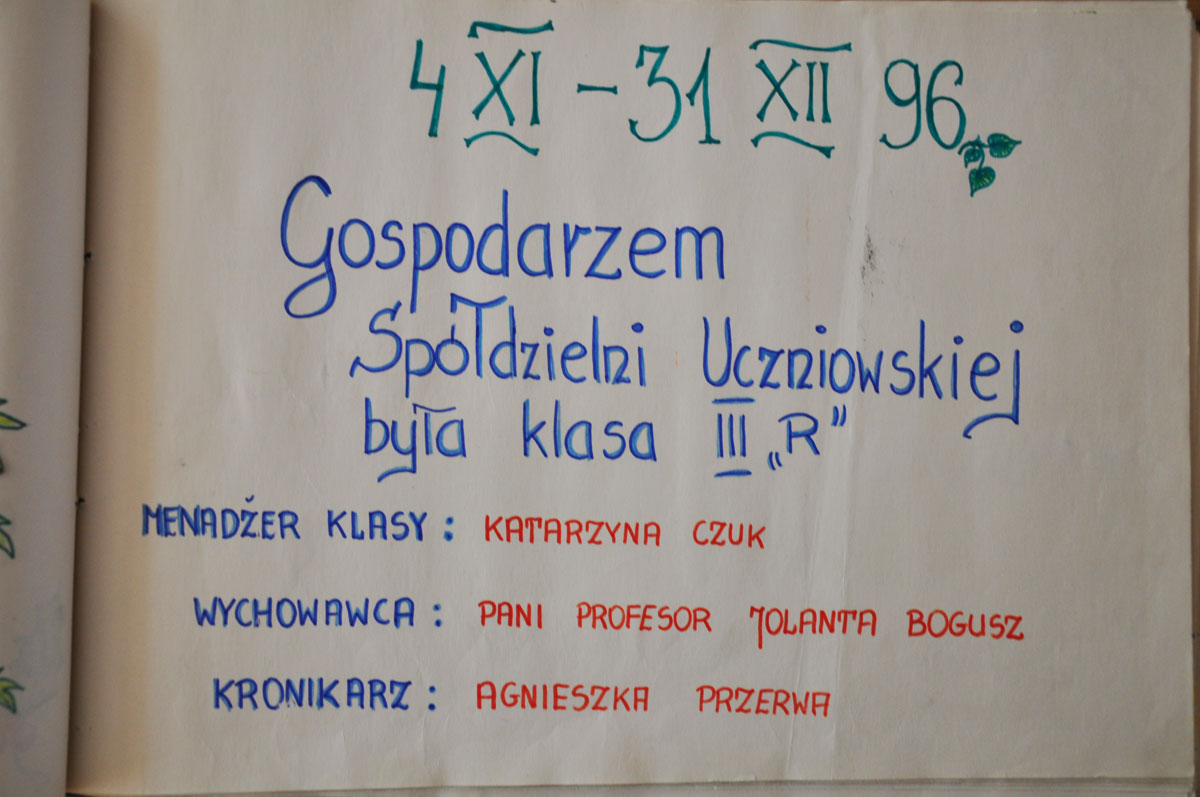 4 XI - 31 XII 96
Gospodarzem
Spółdzielni Uczniowskiej
była klasa III „R”
MENADŻER KLASY: KATARZYNA CZUK
WYCHOWAWCA: PANI PROFESOR JOLANTA BOGUSZ
KRONIKARZ: AGNIESZKA PRZERWA